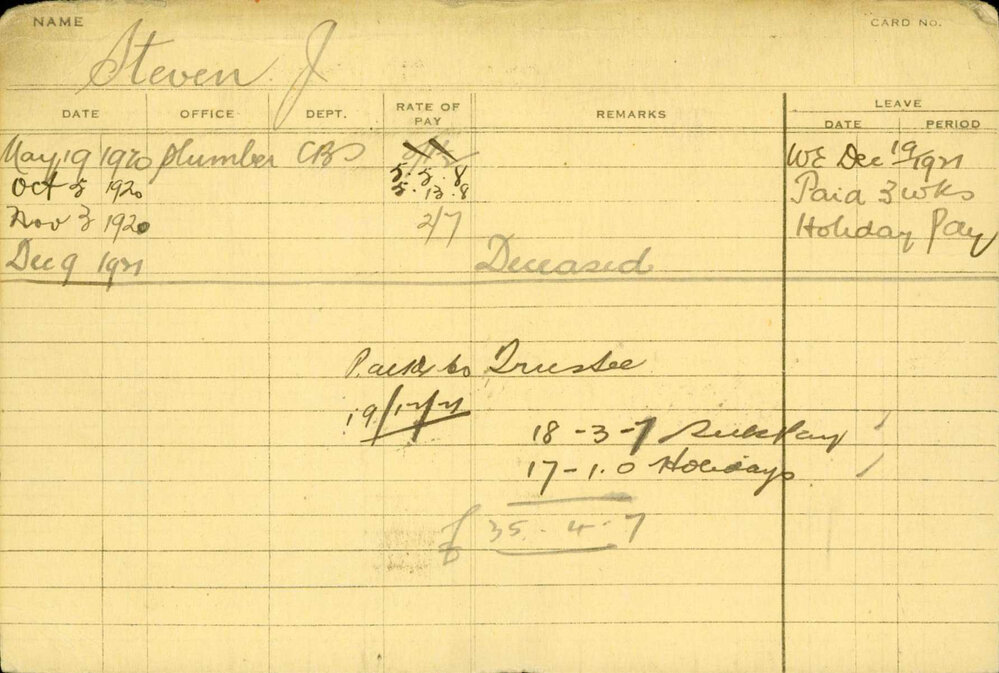 NAME
CARD NO.
Steven J
DATE OFFICE DEPT. RATE OF PAY REMARKS LEAVE
DATE PERIOD
May 19 1920 Plumber CBS WE Dec 19/1921
Oct 5 1920 5.5.8 Paid 3 wks
5.13.8
Nov 3 1920 2/7 Holiday Pay
Dec 9 1921 Deceased
Paid to Trustee
19/12/21
18-3-7 Sick Pay
17-1.0 Holidays
£ 35.4.7